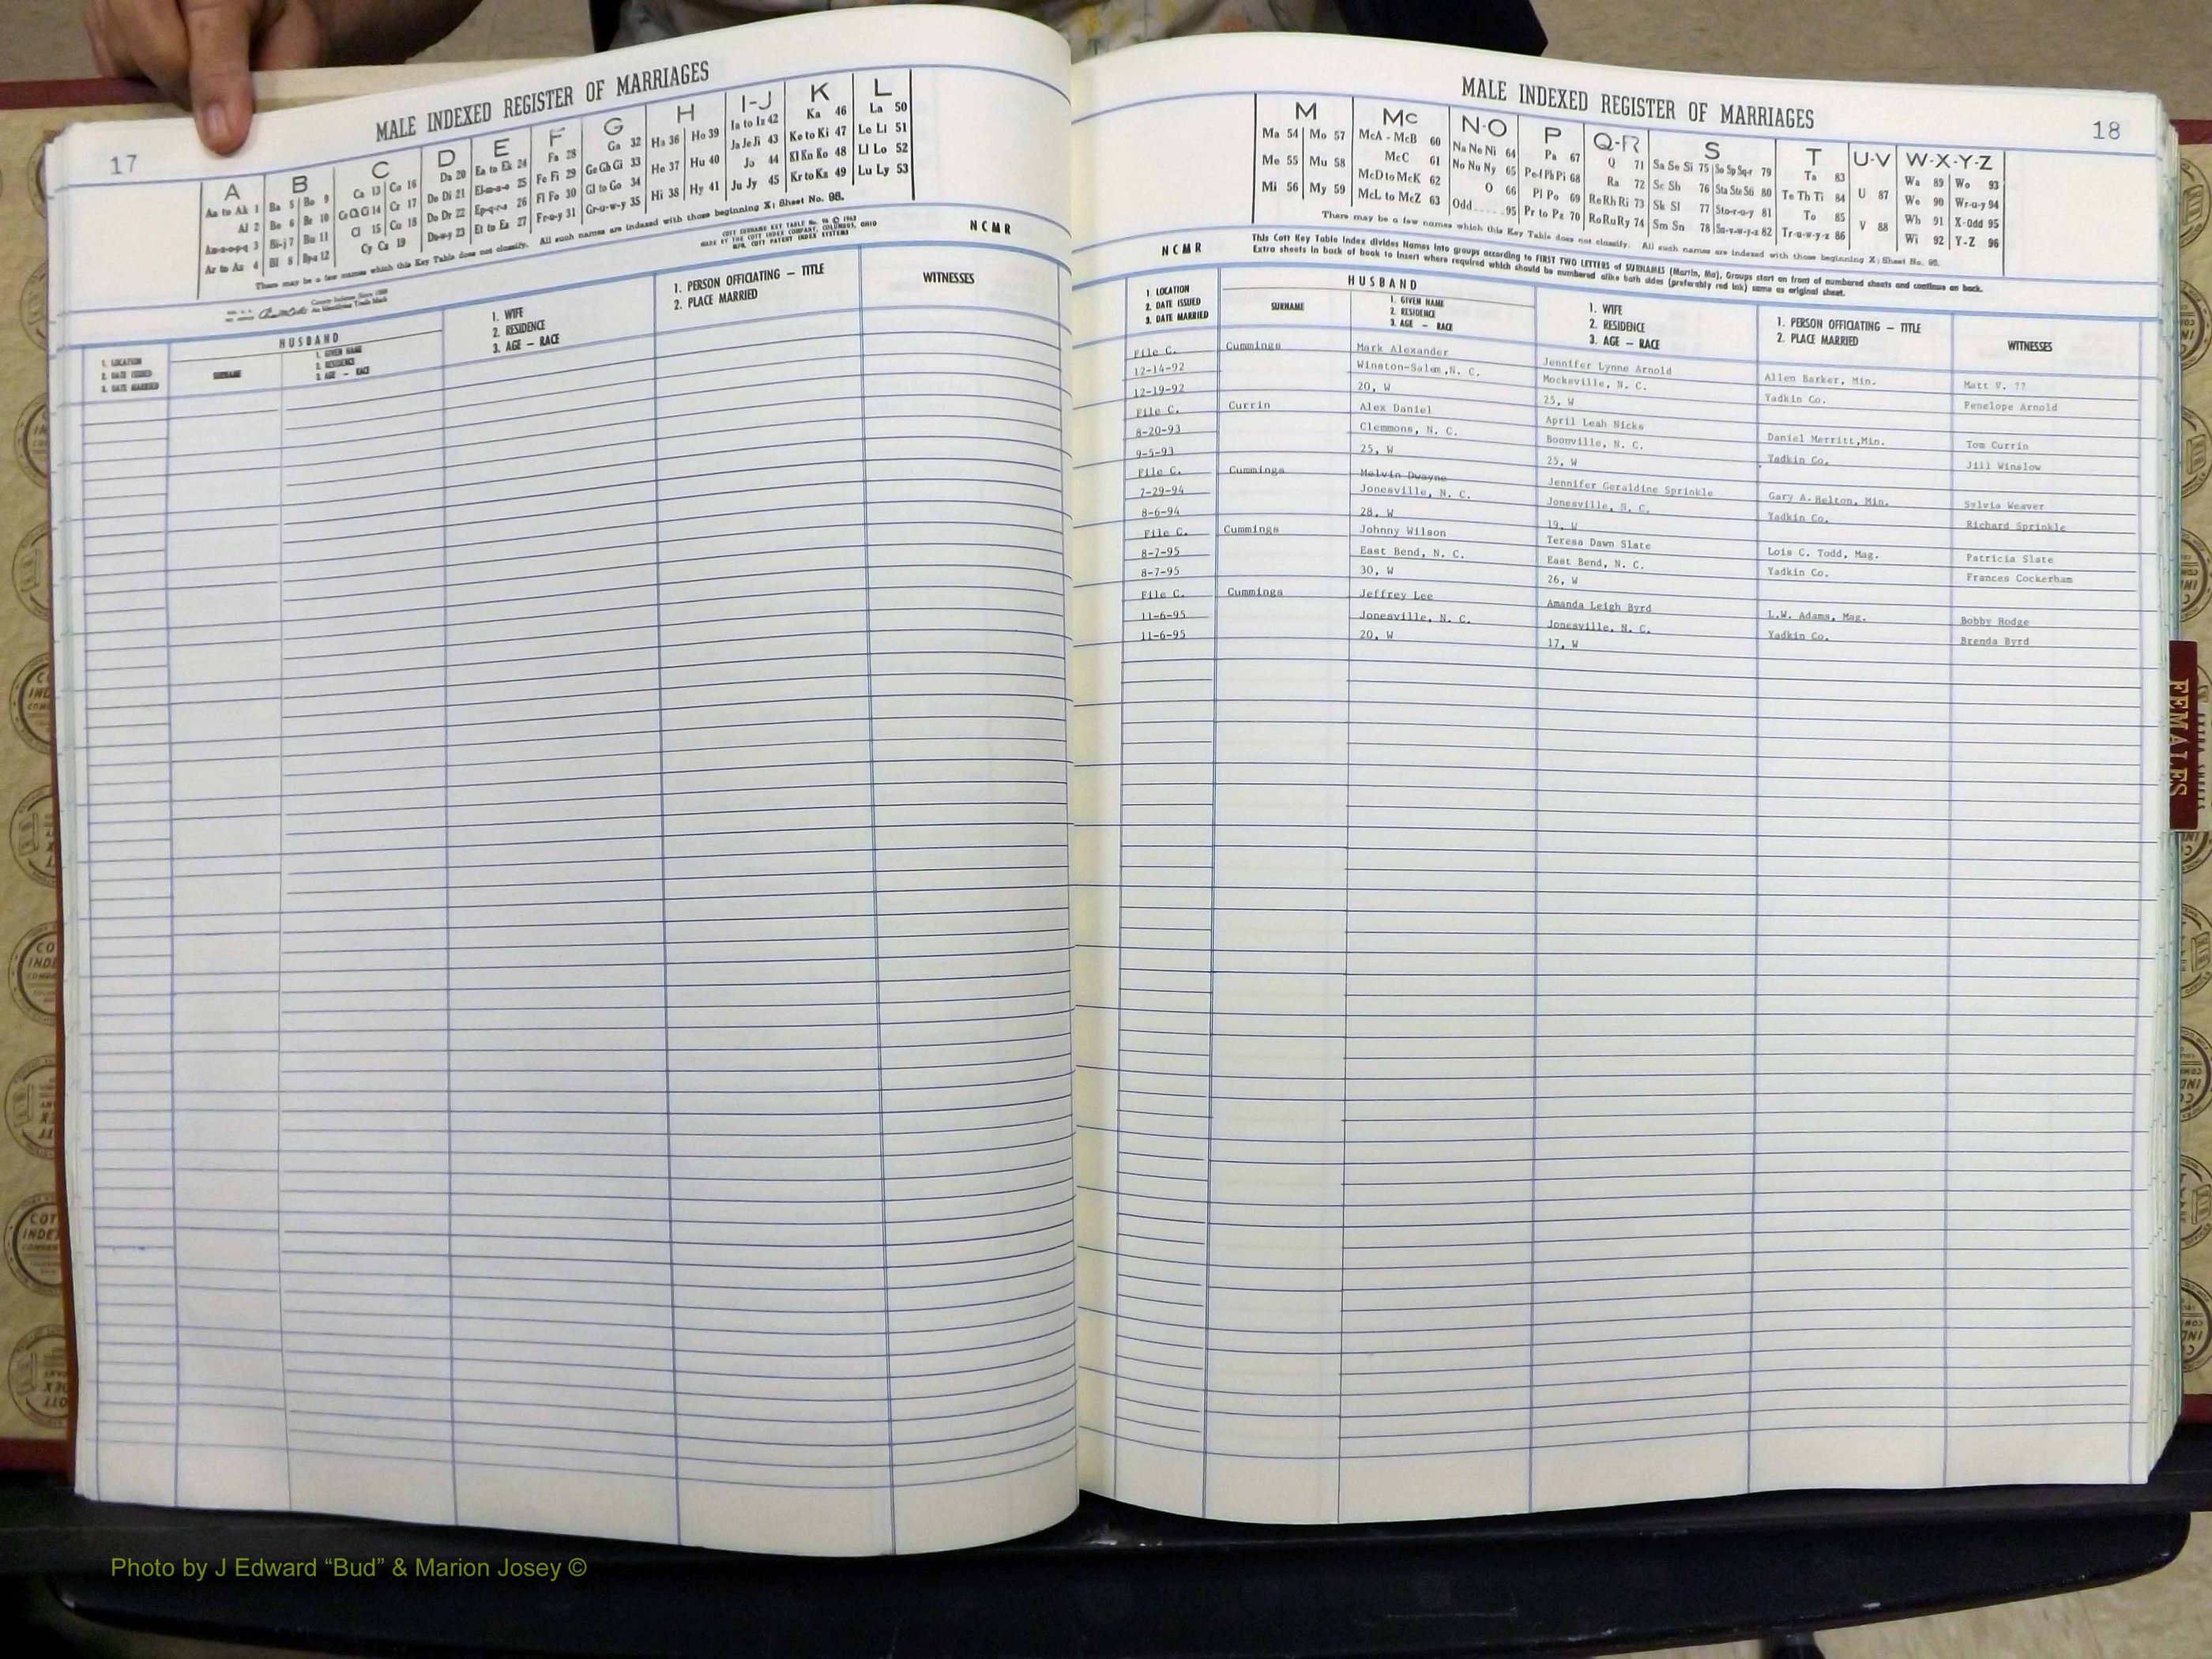 17
MALE INDEXED REGISTER OF MARRIAGES
A B C D E F G H I-J K L
Aa to Ak 1 Ba 5 Bo 9 Ca 13 Co 16 Da 20 Ea to Ek 24 Fa 28 Ga 32 Ha 36 Ho 39 Ia to Iz 42 Ka 46 La 50
Al 2 Be 6 Br 10 Ce Ch Ci 14 Cr 17 De Di 21 El-m-n-o 25 Fe Fi 29 Ge Gh Gi 33 He 37 Hu 40 Ja Je Ji 43 Ke to Ki 47 Le Li 51
Am-n-o-p-q 3 Bi-j 7 Bu 11 Cl 15 Cu 18 Do Dr 22 Ep-q-r-s 26 Fl Fo 30 Gl to Go 34 Hi 38 Hy 41 Jo 44 Kl Kn Ko 48 Ll Lo 52
Ar to Az 4 Bl 8 Bp-z 12 Cy Cz 19 Du-w-y 23 Et to Ez 27 Fr-u-y 31 Gr-u-w-y 35 Ju Jy 45 Kr to Kz 49 Lu Ly 53
There may be a few names which this Key Table does not classify. All such names are indexed with those beginning X; Sheet No. 98.
COTT SURNAME KEY TABLE No. 96 © 1963
MADE BY THE COTT INDEX COMPANY, COLUMBUS, OHIO
MFR. COTT PATENT INDEX SYSTEMS
NCMR
County Indexes Since 1888
An Identifying Trade Mark
1. LOCATION
2. DATE ISSUED
3. DATE MARRIED
HUSBAND
SURNAME
1. GIVEN NAME
2. RESIDENCE
3. AGE — RACE
1. WIFE
2. RESIDENCE
3. AGE — RACE
1. PERSON OFFICIATING — TITLE
2. PLACE MARRIED
WITNESSES
MALE INDEXED REGISTER OF MARRIAGES
18
M Mc N-O P Q-R S T U-V W-X-Y-Z
Ma 54 Mo 57 McA - McB 60 Na Ne Ni 64 Pa 67 Q 71 Sa Se Si 75 So Sp Sq-r 79 Ta 83 U 87 Wa 89 Wo 93
Me 55 Mu 58 McC 61 No Nu Ny 65 Pe-f Ph Pi 68 Ra 72 Sc Sh 76 Sta Ste Sti 80 Te Th Ti 84 V 88 We 90 Wr-u-y 94
Mi 56 My 59 McD to McK 62 O 66 Pl Po 69 Re Rh Ri 73 Sk Sl 77 Sto-r-u-y 81 To 85 Wh 91 X-Odd 95
McL to McZ 63 Odd 95 Pr to Pz 70 Ro Ru Ry 74 Sm Sn 78 Su-v-w-y-z 82 Tr-u-w-y-z 86 Wi 92 Y-Z 96
There may be a few names which this Key Table does not classify. All such names are indexed with those beginning X; Sheet No. 98.
NCMR
This Cott Key Table Index divides Names into groups according to FIRST TWO LETTERS of SURNAMES (Martin, Ma). Groups start on front of numbered sheets and continue on back.
Extra sheets in back of book to insert where required which should be numbered alike both sides (preferably red ink) same as original sheet.
1. LOCATION
2. DATE ISSUED
3. DATE MARRIED
HUSBAND
SURNAME
1. GIVEN NAME
2. RESIDENCE
3. AGE — RACE
1. WIFE
2. RESIDENCE
3. AGE — RACE
1. PERSON OFFICIATING — TITLE
2. PLACE MARRIED
WITNESSES
File C. Cummings Mark Alexander Jennifer Lynne Arnold Allen Barker, Min. Matt V. ??
12-14-92 Winston-Salem, N. C. Mocksville, N. C. Yadkin Co. Penelope Arnold
12-19-92 20, W 25, W
File C. Currin Alex Daniel April Leah Nicks Daniel Merritt,Min. Tom Currin
8-20-93 Clemmons, N. C. Boonville, N. C. Yadkin Co. Jill Winslow
9-5-93 25, W 25, W
File C. Cummings Melvin Dwayne Jennifer Geraldine Sprinkle Gary A. Helton, Min. Sylvia Weaver
7-29-94 Jonesville, N. C. Jonesville, N. C. Yadkin Co. Richard Sprinkle
8-6-94 28, W 19, W
File C. Cummings Johnny Wilson Teresa Dawn Slate Lois C. Todd, Mag. Patricia Slate
8-7-95 East Bend, N. C. East Bend, N. C. Yadkin Co. Frances Cockerham
8-7-95 30, W 26, W
File C. Cummings Jeffrey Lee Amanda Leigh Byrd L.W. Adams, Mag. Bobby Hodge
11-6-95 Jonesville, N. C. Jonesville, N. C. Yadkin Co. Brenda Byrd
11-6-95 20, W 17, W
FEMALES
Photo by J Edward “Bud” & Marion Josey ©